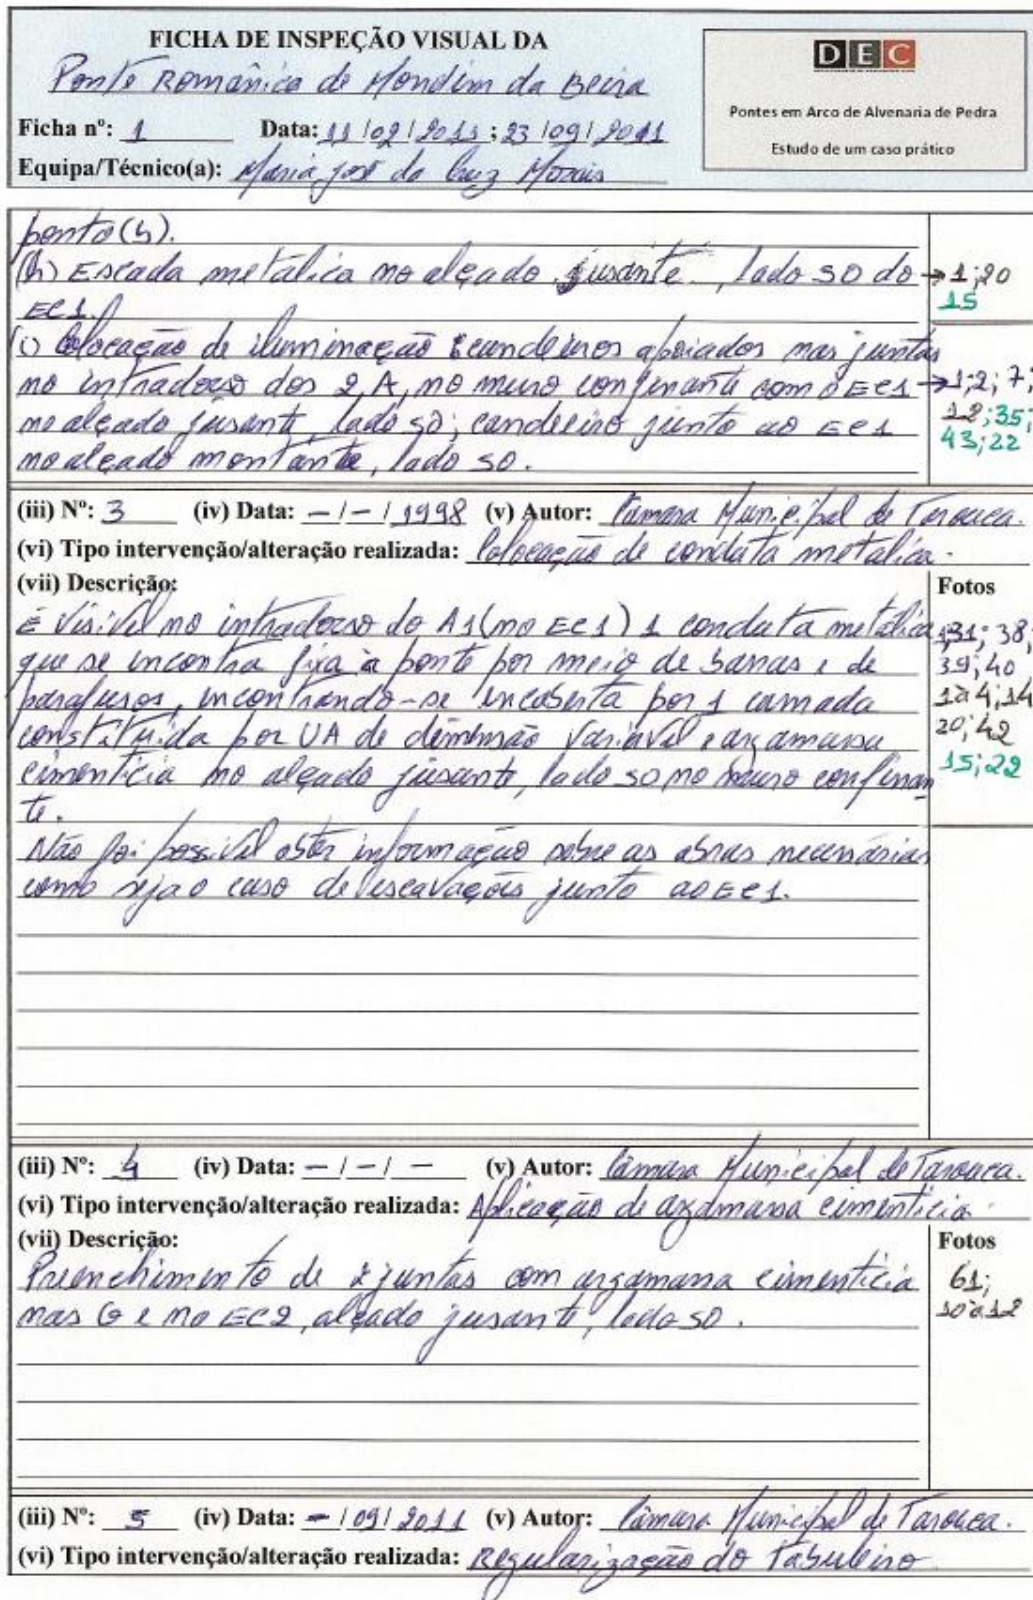 FICHA DE INSPEÇÃO VISUAL DA
Ponte Românica de Mondim da Beira
Ficha nº: 1 Data: 11/02/2011; 23/09/2011
Equipa/Técnico(a): Maria José da Cruz Morais
DEC
Pontes em Arco de Alvenaria de Pedra
Estudo de um caso prático
ponto (4).
(h) Escada metálica no alçado jusante, lado SO do → 1;20
EC1. 15
(i) Colocação de iluminação candeeiros apoiados nas juntas
no intradorso dos 2 A, no muro confinante com o EC1 → 1;2; 7;
no alçado jusante, lado SO; candeeiro junto ao EC1 12;35;
no alçado montante, lado SO. 43;22
(iii) Nº: 3 (iv) Data: -/-/1998 (v) Autor: Câmara Municipal de Tarouca.
(vi) Tipo intervenção/alteração realizada: Colocação de conduta metálica.
(vii) Descrição: Fotos
É visível no intradorso do A1 (no EC1) 1 conduta metálica 31; 38;
que se encontra fixa à ponte por meio de barras e de 39;40
parafusos, encontrando-se encoberta por 1 camada 1a4;14
constituída por UA de dimensão variável e argamassa 20;42
cimentícia no alçado jusante, lado SO no muro confinan 15;22
te.
Não foi possível obter informação sobre as obras necessárias
como seja o caso de escavações junto ao EC1.
(iii) Nº: 4 (iv) Data: -/-/- (v) Autor: Câmara Municipal de Tarouca.
(vi) Tipo intervenção/alteração realizada: Aplicação de argamassa cimentícia
(vii) Descrição: Fotos
Preenchimento de juntas com argamassa cimentícia 61;
nas G e no EC2, alçado jusante, lado SO. 10a12
(iii) Nº: 5 (iv) Data: -/09/2011 (v) Autor: Câmara Municipal de Tarouca.
(vi) Tipo intervenção/alteração realizada: Regularização do Tabuleiro